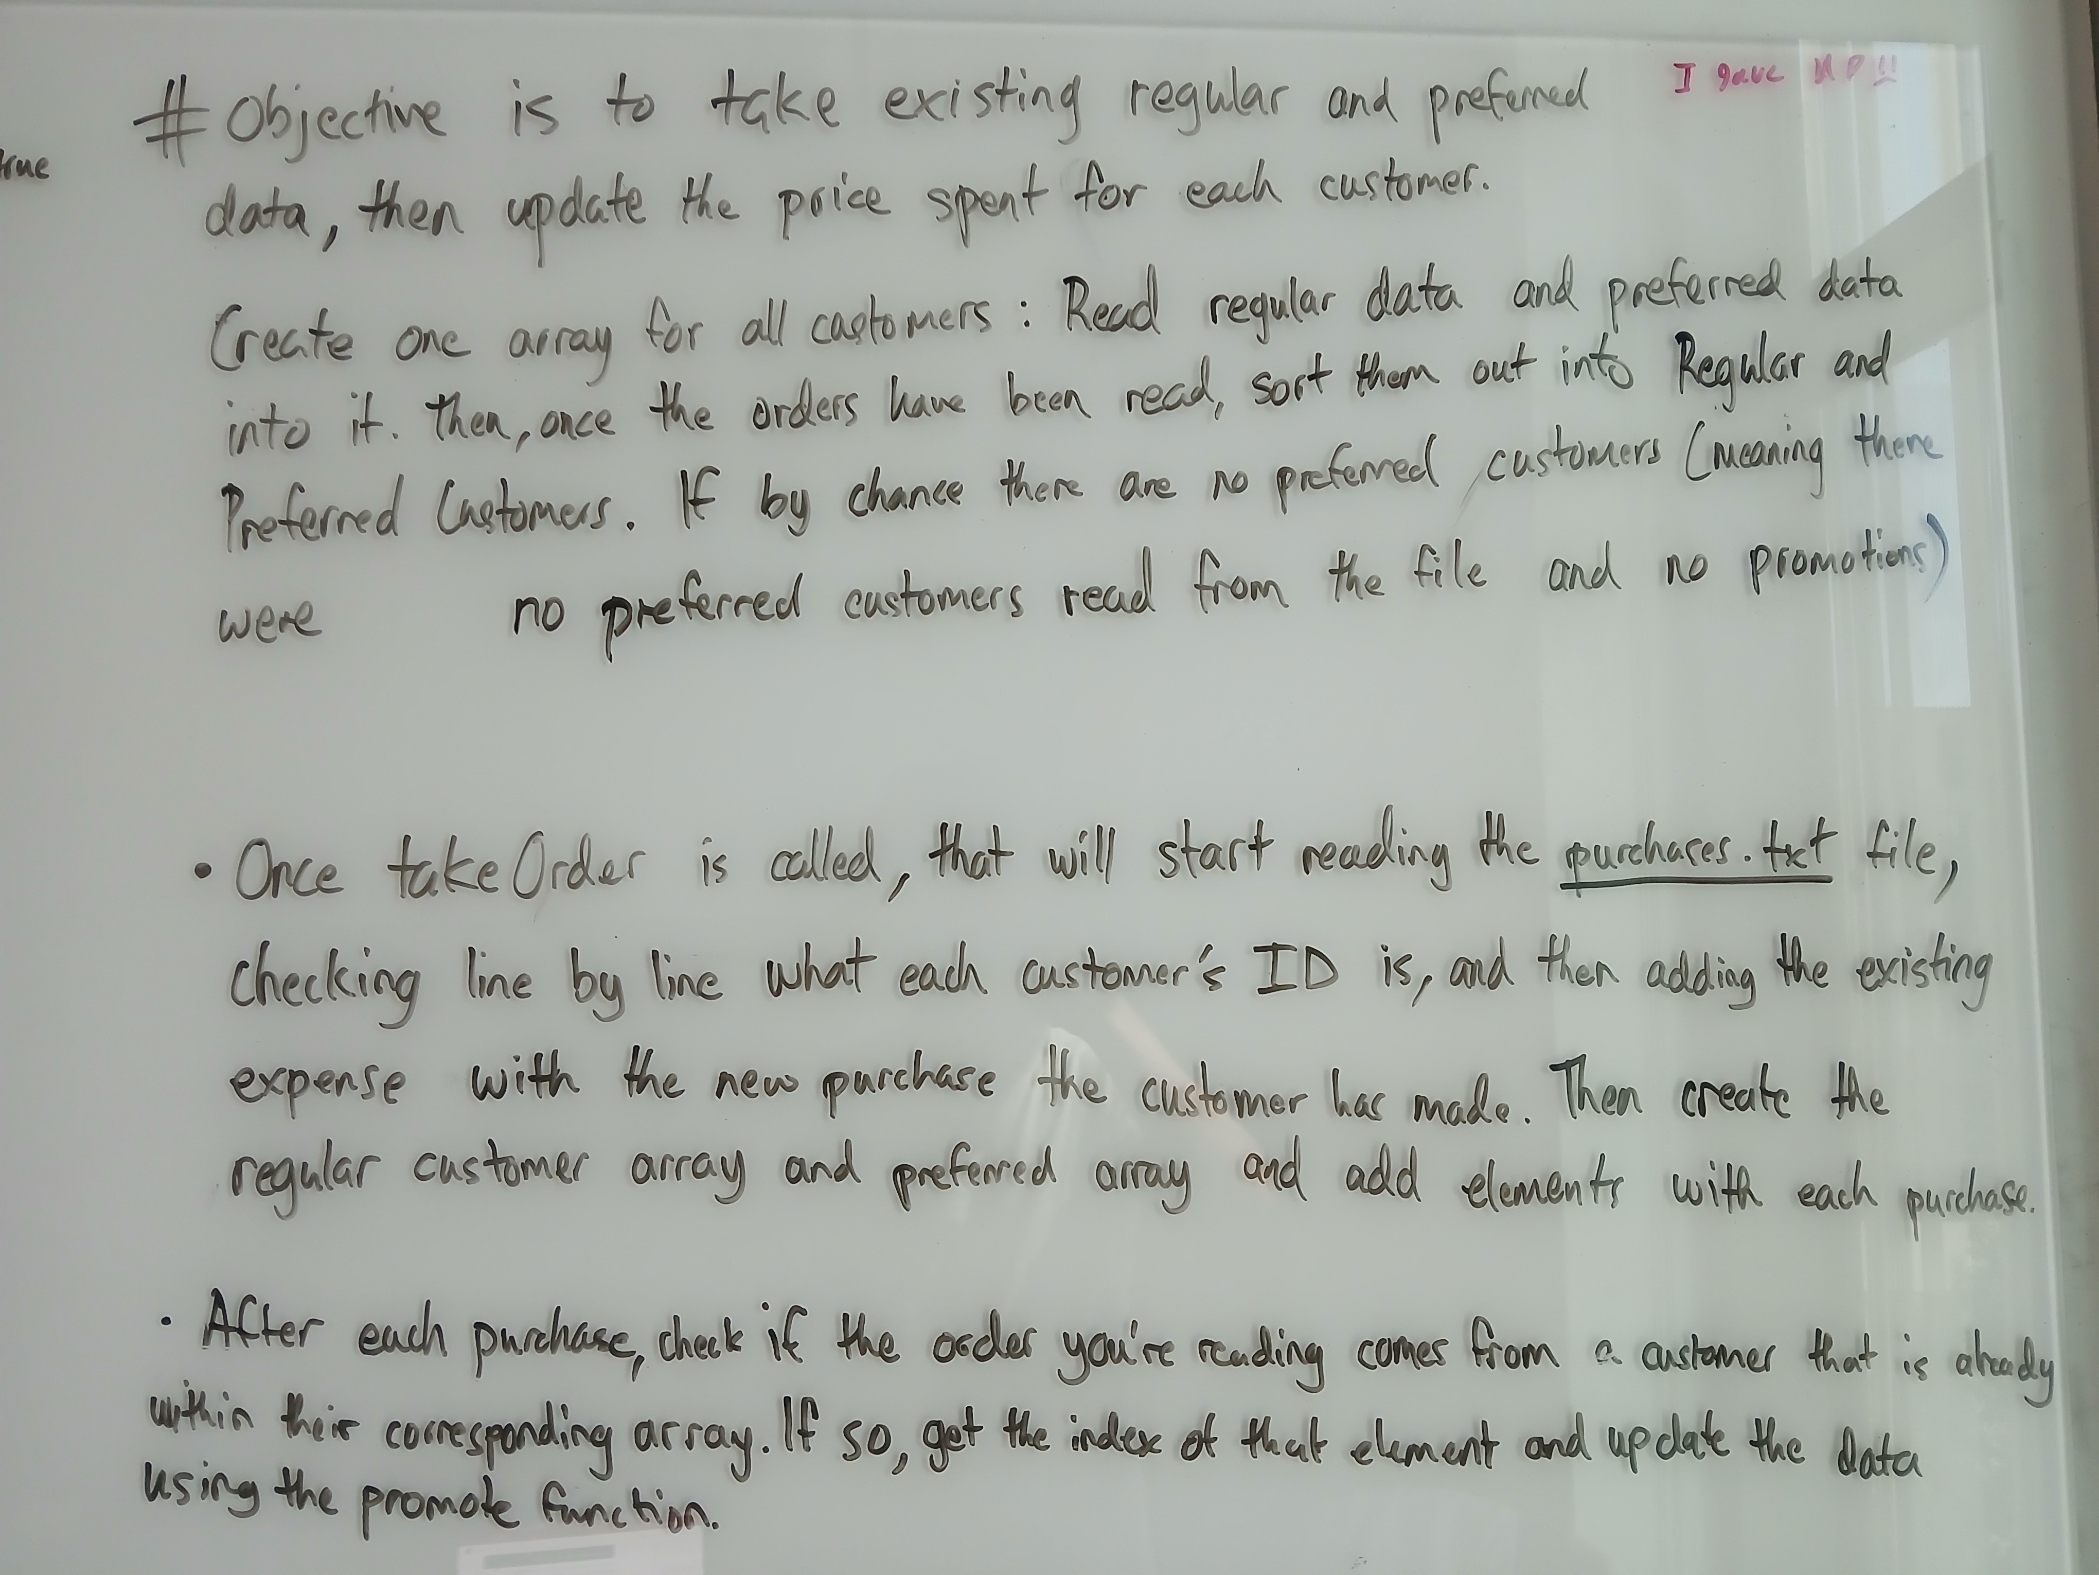 I gave UP!!
# Objective is to take existing regular and preferred
true
data, then update the price spent for each customer.
Create one array for all customers : Read regular data and preferred data
into it. Then, once the orders have been read, sort them out into Regular and
Preferred Customers. If by chance there are no preferred customers (meaning there
were no preferred customers read from the file and no promotions)
• Once takeOrder is called, that will start reading the purchases.txt file,
checking line by line what each customer's ID is, and then adding the existing
expense with the new purchase the customer has made. Then create the
regular customer array and preferred array and add elements with each purchase.
• After each purchase, check if the order you're reading comes from a customer that is already
within their corresponding array. If so, get the index of that element and update the data
using the promote function.